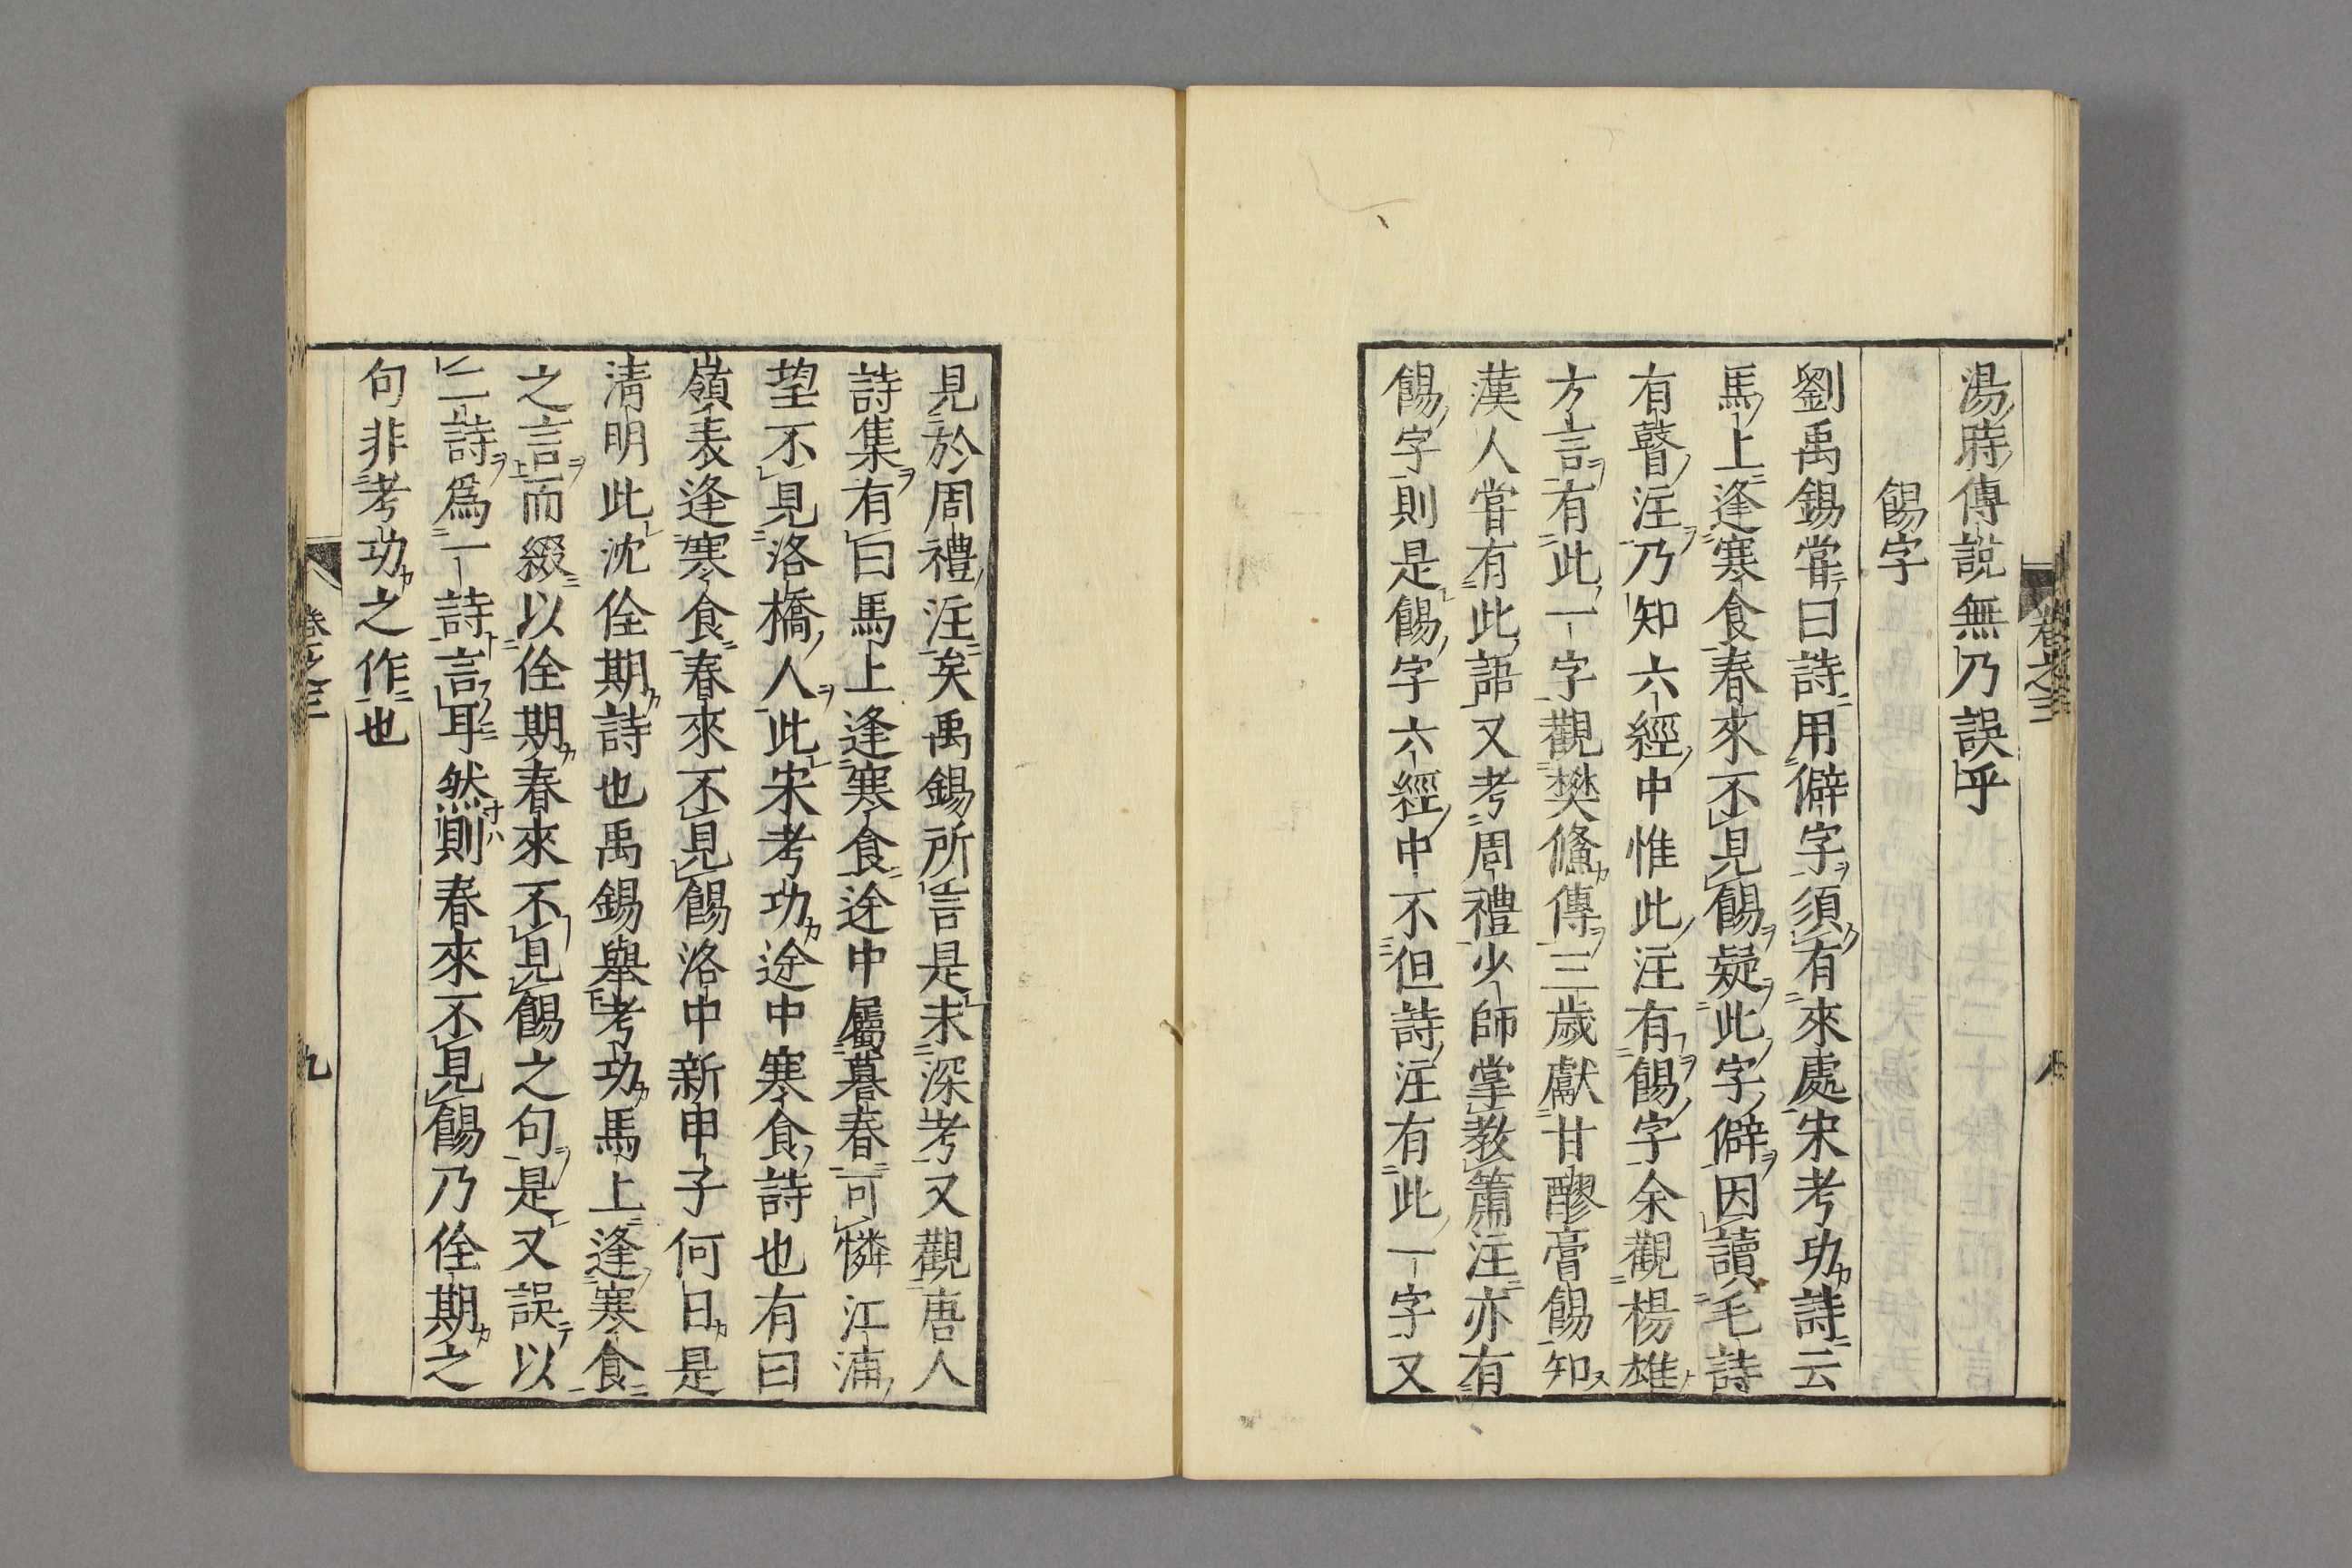 卷之三
八
湯時傳說無乃誤乎
餳字
劉禹錫嘗曰詩用僻字須有來處宋考功詩云
馬上逢寒食春來不見餳疑此字僻因讀毛詩
有瞽注乃知六經中惟此注有餳字余觀楊雄
方言有此一字觀樊鯈傳三歲獻甘醪膏餳知
漢人嘗有此語又考周禮少師掌教簫注亦有
餳字則是餳字六經中不但詩注有此一字又
見於周禮注矣禹錫所言是未深考又觀唐人
詩集有曰馬上逢寒食途中屬暮春可憐江浦
望不見洛橋人此宋考功途中寒食詩也有曰
嶺表逢寒食春來不見餳洛中新甲子何日是
清明此沈佺期詩也禹錫舉考功馬上逢寒食
之言而綴以佺期春來不見餳之句是又誤以
二詩爲一詩言耳然則春來不見餳乃佺期之
句非考功之作也
卷之三
九